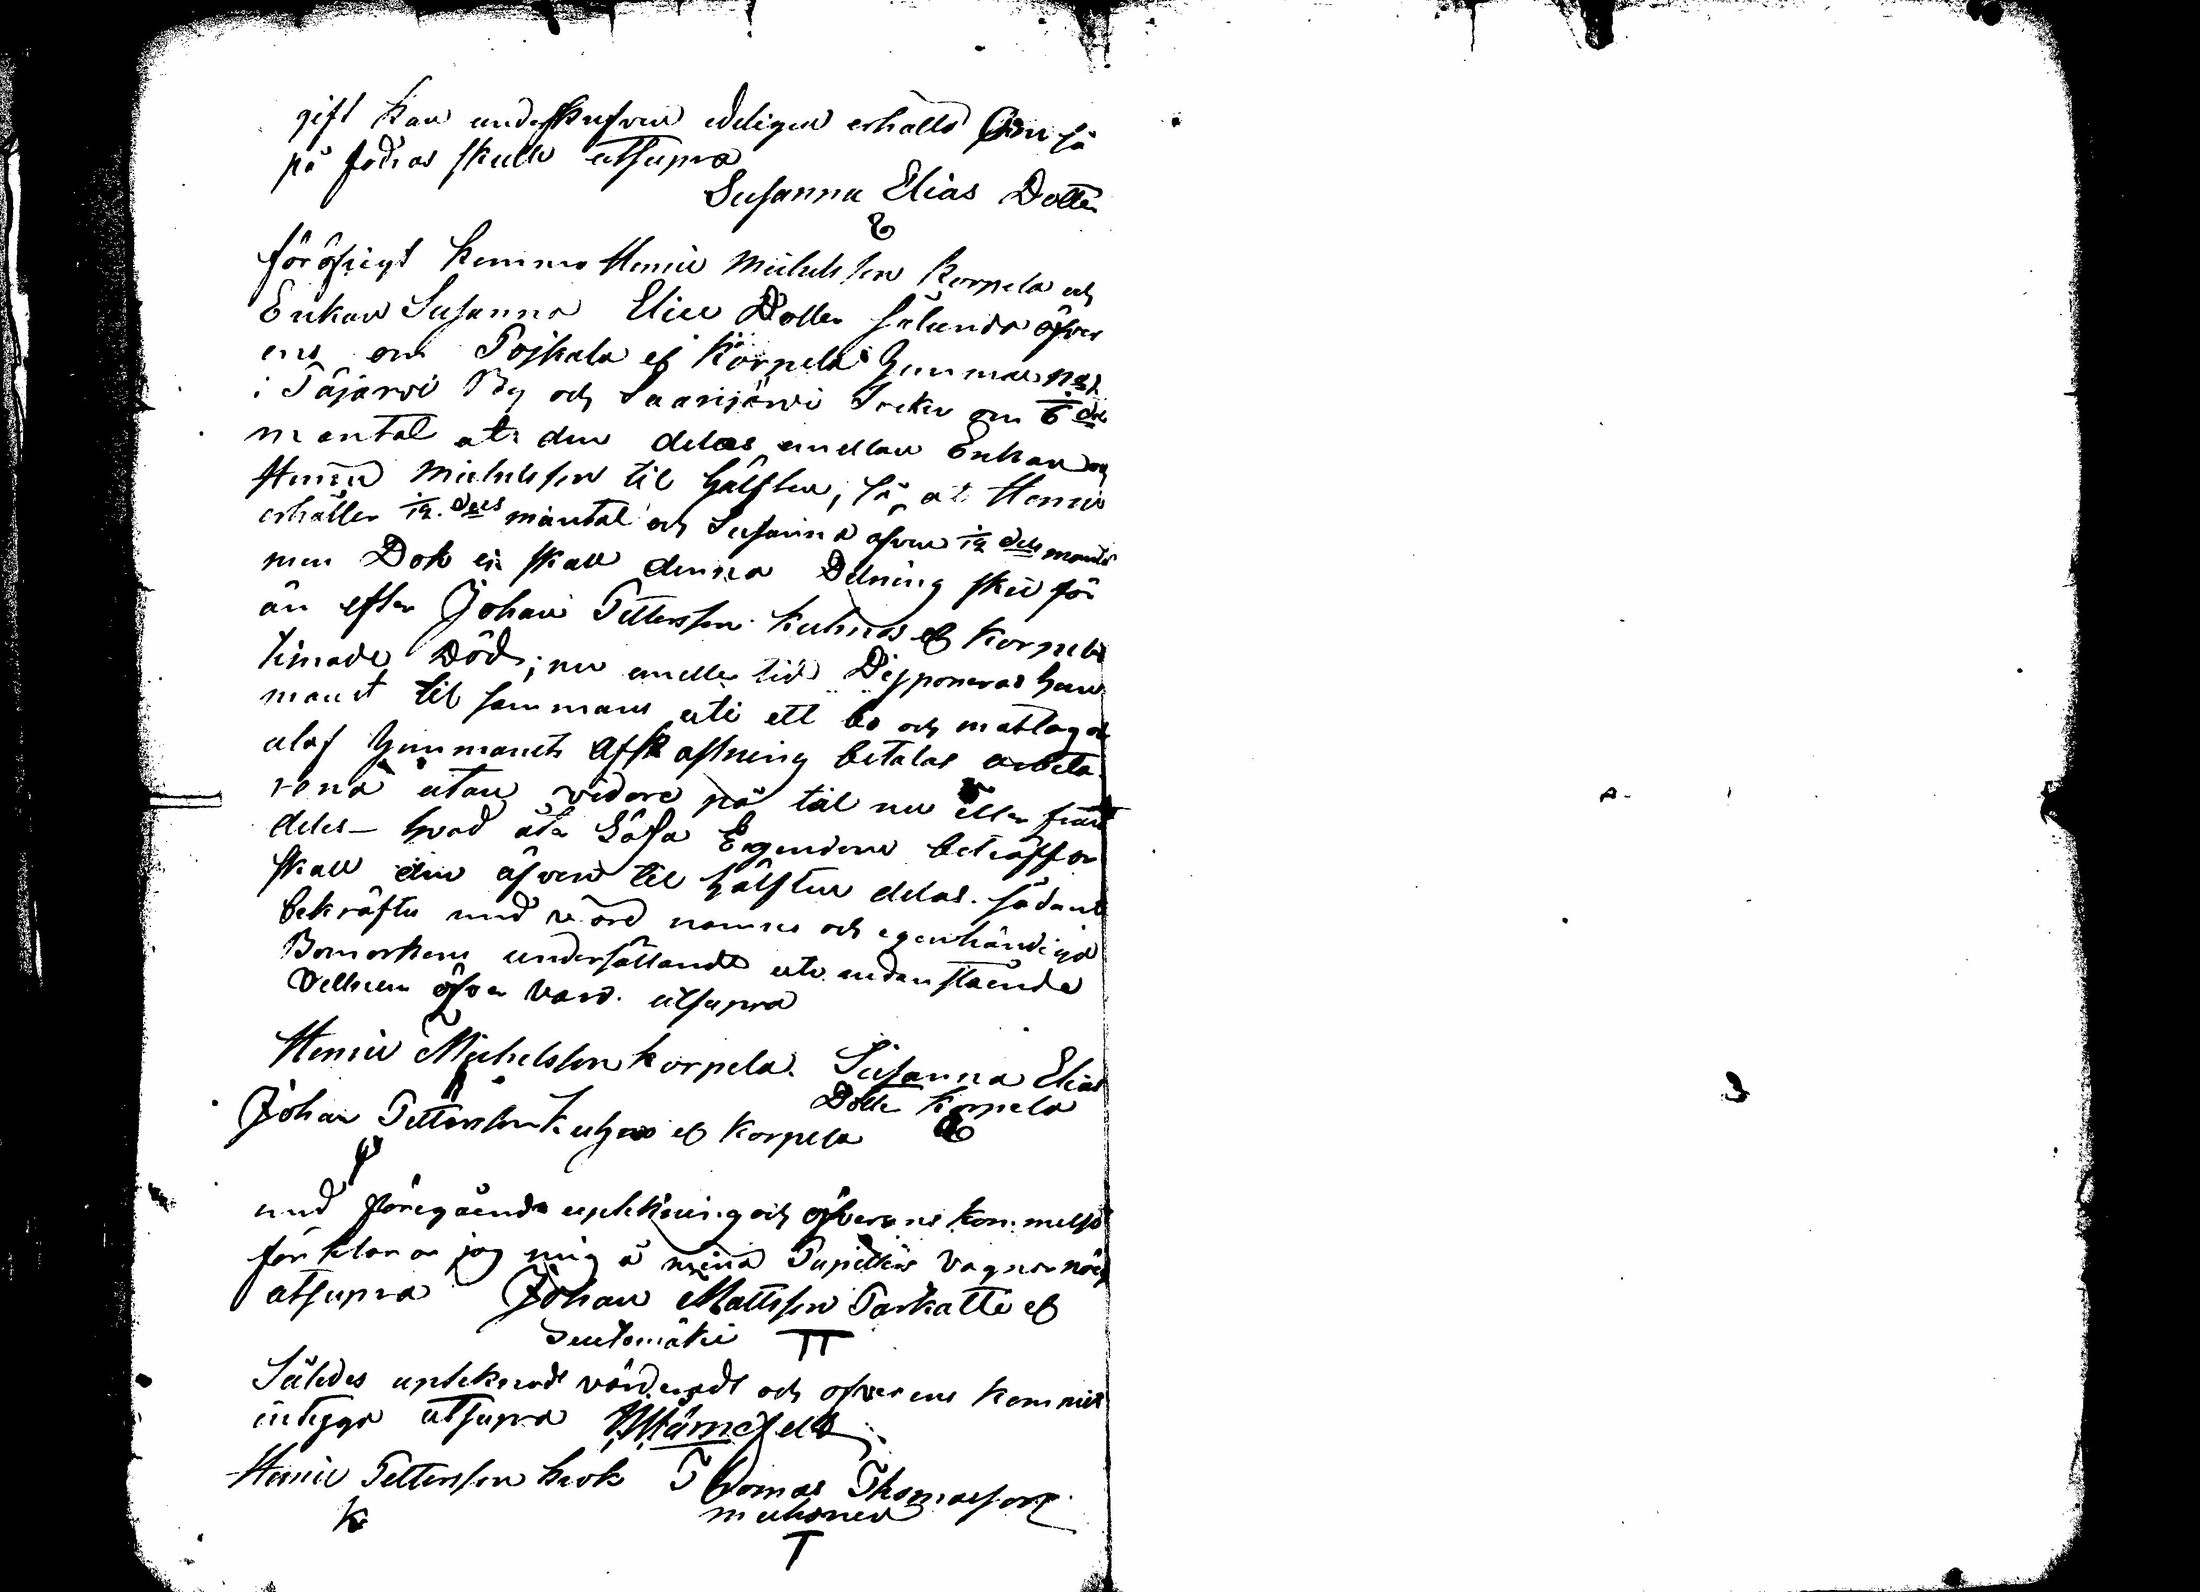 gift kan underskrifven edeligen erhålla Om så
på fodras skulle utsupra
Susanna Elias Dotter
för öfrigt kommo Henric Michelsson Korpela och
Enkan Susanna Elice Dotter sålunda öfver
ens om Poikala et Korpela Hemman N:o
i Pajarvi By och Saarijärvi Socken om 1/6 dels
mantal at den delas emellan Enkan och
Henric Michelsson til hälften, så at Henric
erhåller 1/12 dels mantal och Susanna äfven 1/12 dels mantal
men Dok ei skall denna Delning ske för
än efter Johan Pettersson Kuhnas et Korpela
timade Död; nu emellertid Disponeras hem
manet til sammans uti ett bo och matlag och
utaf Hemmanets Afkastning betalas arbeta-
rena utan vidare på tal nu eller fram
deles – hvad åter Lösa Egendomen beträffar
skall den äfven til hälften delas. sådant
bekräfta med våra namns och egenhändiga
Bomärkens undersättande uti nedanstående
vittnens öfver varo. utsupra
Henric Michelsson Korpela. Susanna Elias
Dotter Korpela
Johan Pettersson Kuhnas et Korpela
med föregående uptekning och öfverenskommelse
förklarar jag mig å mina Pupillers vagnar nöjd
utsupra Johan Mattsson Parkatti et
Suutomäki
Således upteknadt värderadt och öfverens kommit
intyga utsupra
Henric Pettersson Krok Thomas Thomasson
K muhonen
T